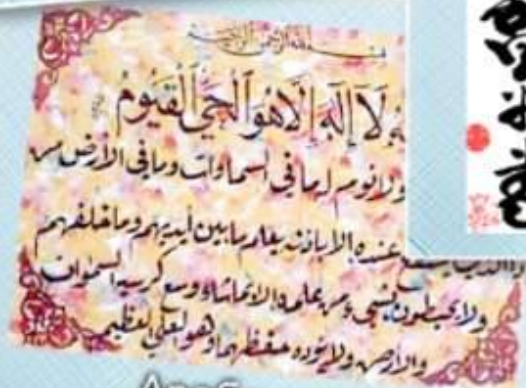 بسم الله الرحمن الرحيم
لَا إِلَهَ إِلَّا هُوَ ٱلْحَيُّ ٱلْقَيُّومُ
ولا نوم له ما في السماوات وما في الأرض من
عنده إلا باذنه يعلم ما بين أيديهم وما خلفهم
ولا يحيطون بشيء من علمه إلا بما شاء وسع كرسيه السموات
والأرض ولا يؤده حفظهما وهو العلي العظيم